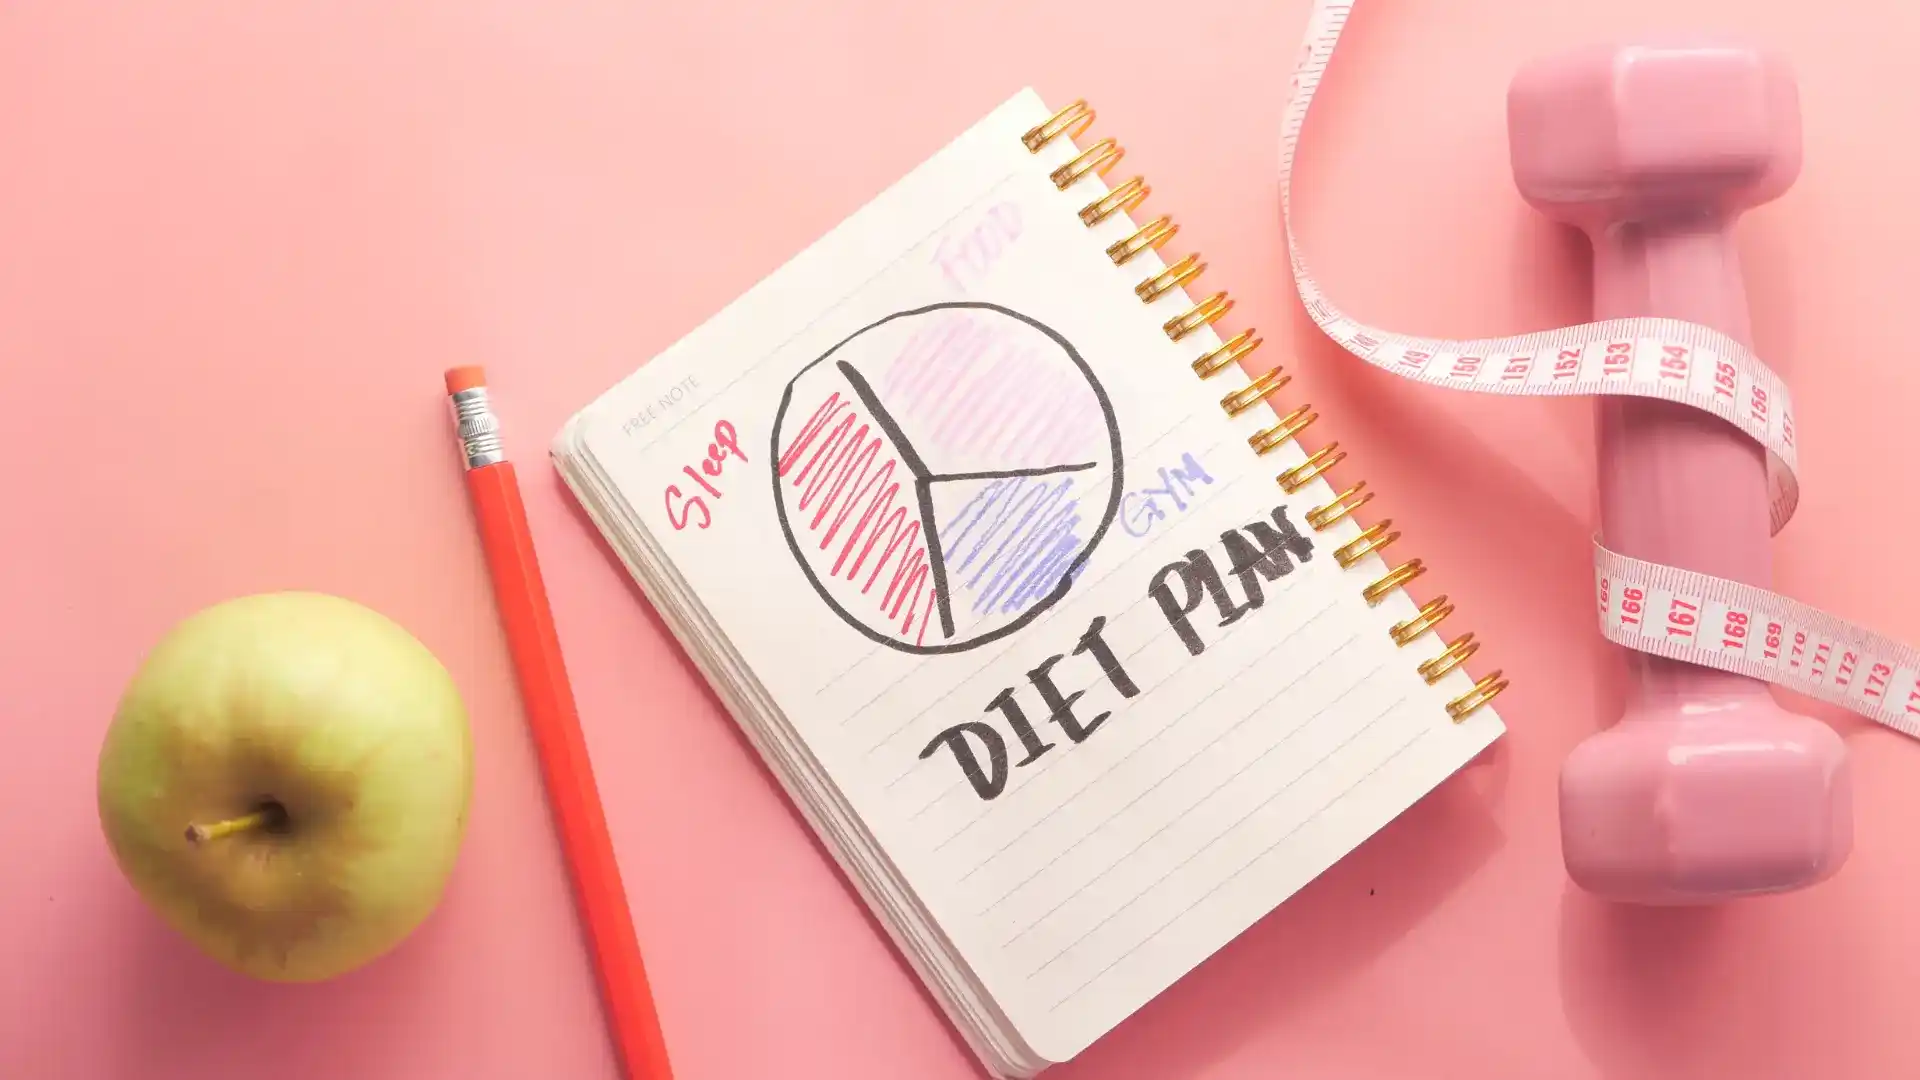 FREE NOTE
FOOD
Sleep
GYM
DIET PLAN
148 149 150 151 152 153 154 155 156 157
166 167 168 169 170 171 172 173